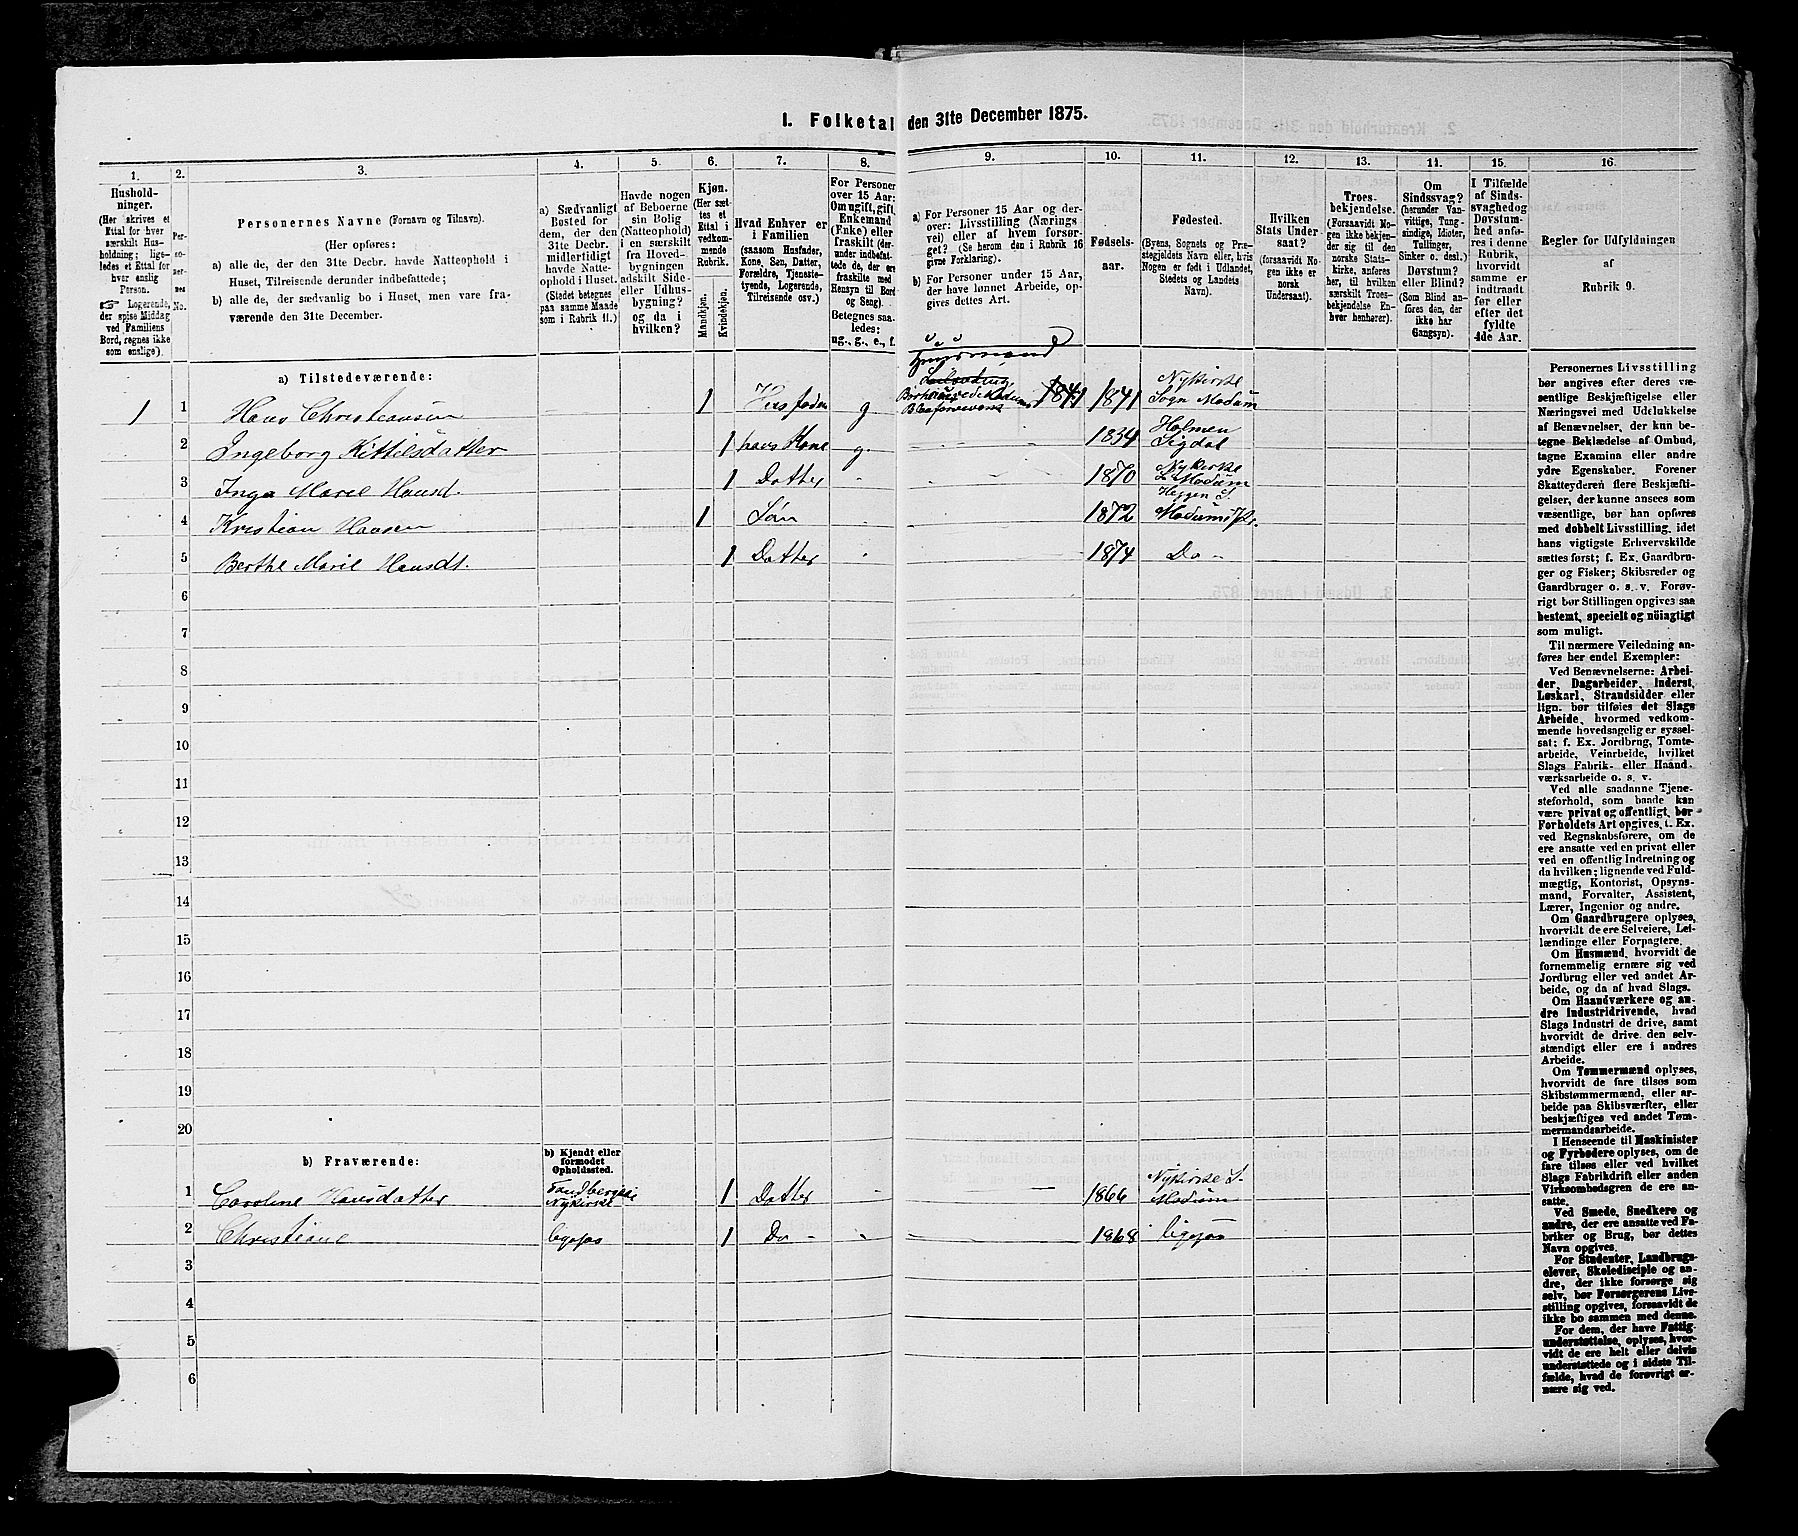 I. Folketal den 31te December 1875.
1. 2. 3. 4. 5. 6. 7. 8. 9. 10. 11. 12. 13. 14. 15. 16.
Hushold-
ninger.
(Her skrives et
Ettal for hver
særskilt Hus-
holdning; lige-
ledes et Ettal for
hver enslig
Person.
☞ Logerende,
der spise Middag
ved Familiens
Bord, regnes ikke
som enslige).
Per-
so-
ner-
nes
No.
Personernes Navne (Fornavn og Tilnavn).
(Her opføres:
a) alle de, der den 31te Decbr. havde Natteophold i
Huset, Tilreisende derunder indbefattede;
b) alle de, der sædvanlig bo i Huset, men vare fra-
værende den 31te December.
a) Sædvanligt
Bosted for
dem, der den
31te Decbr.
midlertidigt
havde Natte-
ophold i Huset.
(Stedet betegnes
paa samme Maade
som i Rubrik 11.)
Havde nogen
af Beboerne
sin Bolig
(Natteophold)
i en særskilt
fra Hoved-
bygningen
adskilt Side-
eller Udhus-
bygning?
og da i
hvilken?
Kjøn.
(Her sæt-
tes et
Ettal i
vedkom-
mende
Rubrik.
Mandkjøn.
Kvindekjøn.
Hvad Enhver er
i Familien
(saasom Husfader,
Kone, Søn, Datter,
Forældre, Tjeneste-
tyende, Logerende,
Tilreisende osv.)
For Personer
over 15 Aar:
Om ugift, gift,
Enkemand
(Enke) eller
fraskilt (der-
under indbefat-
tede de, der ere
fraskilte med
Hensyn til Bord
og Seng).
Betegnes saa-
ledes:
ug., g., e., f.
a) For Personer 15 Aar og der-
over: Livsstilling (Nærings-
vei) eller af hvem forsør-
get? (Se herom den i Rubrik 16
givne Forklaring).
b) For Personer under 15 Aar,
der have lønnet Arbeide, op-
gives dettes Art.
Fødsels-
aar.
Fødested.
(Byens, Sognets og Præ-
stegjeldets Navn, eller hvis
Nogen er født i Udlandet,
Stedets og Landets
Navn).
Hvilken
Stats Under-
saat?
(forsaavidt No-
gen ikke er
norsk
Undersaat).
Troes-
bekjendelse.
(Forsaavidt No-
gen ikke bekjen-
der sig til den
norske Stats-
kirke, anføres
her, til hvilken
særskilt Troes-
bekjendelse En-
hver henhører).
Om
Sindssvag?
(herunder Van-
vittige, Tung-
sindige, Idioter,
Tullinger,
Sinker o. desl.)
Døvstum?
eller Blind?
(Som Blind an-
føres den, der
ikke har
Gangsyn).
I Tilfælde
af Sinds-
svaghed og
Døvstum-
hed anfø-
res i denne
Rubrik,
hvorvidt
samme er
indtraadt
før eller
efter det
fyldte
4de Aar.
Regler for Udfyldningen
af
Rubrik 9.
a) Tilstedeværende:
Huusmand
1 1 Hans Christiansen 1 Husfader g 1841 1841 Nykirke Sogn Modum
2 Ingeborg Kittilsdatter 1 hans Kone g. 1834 Holmen Sigdal
3 Inga Marie Hansd. 1 Datter 1870 Nykirke S. Modum
4 Kristian Hansen 1 Søn 1872 Heggen S. Modums P.
5 Berthe Marie Hansdt. 1 Datter 1874 Do
6
7
8
9
10
11
12
13
14
15
16
17
18
19
20
b) Fraværende:
b) Kjendt eller
formodet
Opholdssted.
1 Caroline Hansdatter Nykirke 1 Datter 1866 Nykirke S. Modum
2 Christiane ligesaa 1 Do 1868 ligesaa
3
4
5
6
Personernes Livsstilling
bør angives efter deres væ-
sentlige Beskjæftigelse eller
Næringsvei med Udelukkelse
af Benævnelser, der kun be-
tegne Beklædelse af Ombud,
tagne Examina eller andre
ydre Egenskaber. Forener
Skatteyderen flere Beskjæfti-
gelser, der kunne ansees som
væsentlige, bør han opføres
med dobbelt Livsstilling, idet
hans vigtigste Erhvervskilde
sættes først; f. Ex. Gaardbru-
ger og Fisker; Skibsreder og
Gaardbruger o. s. v. Forøv-
rigt bør Stillingen opgives saa
bestemt, specielt og nöiagtigt
som muligt.
Til nærmere Veiledning an-
føres her endel Exempler:
Ved Benævnelserne: Arbei-
der, Dagarbeider, Inderst,
Løskarl, Strandsidder eller
lign. bør tilføies det Slags
Arbeide, hvormed vedkom-
mende hovedsagelig er syssel-
sat; f. Ex. Jordbrug, Tomte-
arbeide, Veiarbeide, hvilket
Slags Fabrik- eller Haand-
værksarbeide o. s. v.
Ved alle saadanne Tjene-
steforhold, som baade kan
være privat og offentligt, bør
Forholdets Art opgives, t. Ex.
ved Regnskabsførere, om de
ere ansatte ved en privat eller
ved en offentlig Indretning og
da hvilken; lignende ved Fuld-
mægtig, Kontorist, Opsyns-
mand, Forvalter, Assistent,
Lærer, Ingeniør og andre.
Om Gaardbrugere oplyses,
hvorvidt de ere Selveiere, Lei-
lændinge eller Forpagtere.
Om Husmænd, hvorvidt de
fornemmelig ernære sig ved
Jordbrug eller ved andet Ar-
beide, og da af hvad Slags.
Om Haandværkere og an-
dre Industridrivende, hvad
Slags Industri de drive, samt
hvorvidt de drive den selv-
stændigt eller ere i andres
Arbeide.
Om Tømmermænd oplyses,
hvorvidt de fare tilsøs som
Skibstømmermænd, eller ar-
beide paa Skibsværfter, eller
beskjæftiges ved andet Tøm-
mermandsarbeide.
I Henseende til Maskinister
og Fyrbødere oplyses, om de
fare tilsøs eller ved hvilket
Slags Fabrikdrift eller anden
Virksomhedsgren de ere an-
satte.
Ved Smede, Snedkere og
andre, der ere ansatte ved Fa-
briker og Brug, bør dettes
Navn opgives.
For Studenter, Landbrugs-
elever, Skoledisciple og an-
dre, der ikke forsørge sig
selv, bør Forsørgerens Livs-
stilling opgives, forsaavidt de
ikke bo sammen med denne.
For dem, der have Fattig-
understøttelse, oplyses, hvor-
vidt de ere helt eller delvis
understøttede og i sidste Til-
fælde, hvad de forøvrigt er-
nære sig ved.